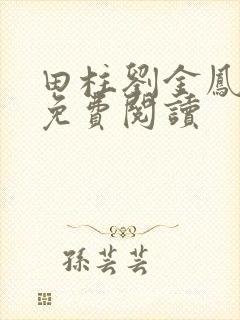 田柱劉金鳳
免費閱讀
孫芸芸